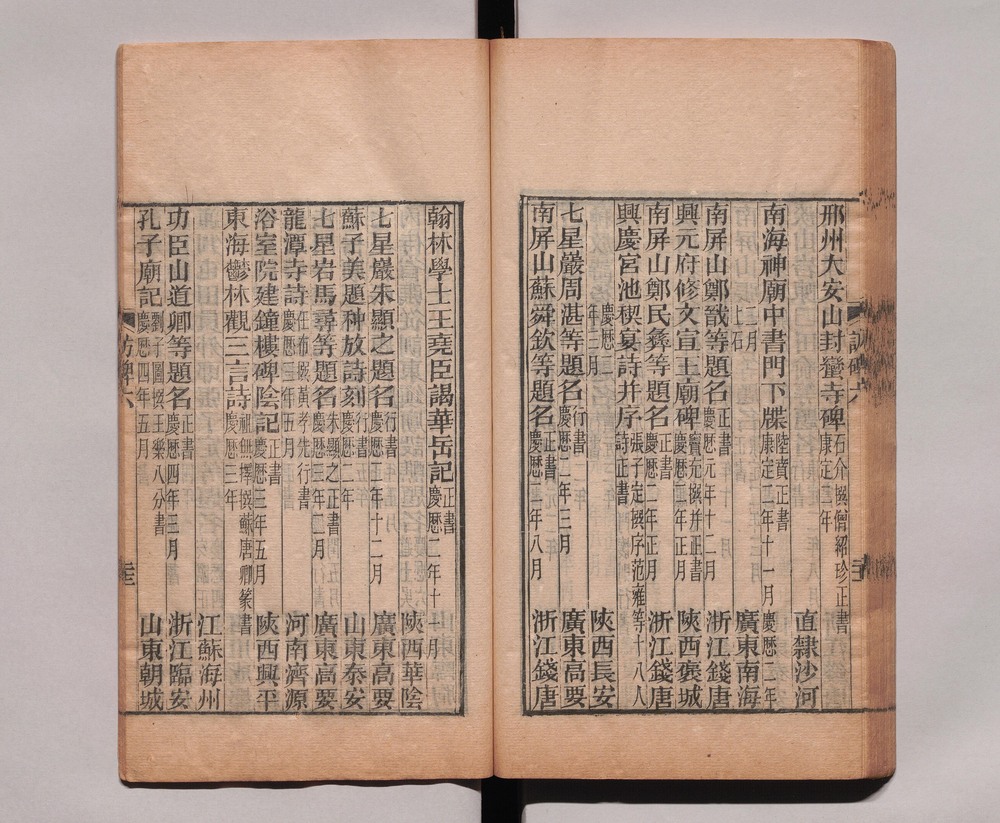 邢州大安山封巒寺碑 石介撰僧紹珍正書 康定二年 直隸沙河
南海神廟中書門下牒 陸賁正書 康定二年十一月慶歷二年二月上石 廣東南海
南屏山鄭戩等題名 正書 慶歷元年十二月 浙江錢唐
興元府修文宣王廟碑 竇充撰并正書 慶歷二年正月 陝西褒城
南屏山鄭民彝等題名 正書 慶歷二年正月 浙江錢唐
興慶宮池禊宴詩并序 張子定撰序范雍等十八人詩正書 慶歷二年三月 陝西長安
七星巖周湛等題名 行書 慶歷二年三月 廣東高要
南屏山蘇舜欽等題名 慶歷二年八月 浙江錢唐
翰林學士王堯臣謁華岳記 正書 慶歷二年十一月 陝西華陰
七星巖朱顯之題名 行書 慶歷二年十二月 廣東高要
蘇子美題种放詩刻 行書 慶歷二年 山東泰安
七星岩馬尋等題名 朱顯之正書 慶歷三年二月 廣東高要
龍潭寺詩 任布撰黃孝先行書 慶歷三年五月 河南濟源
浴室院建鐘樓碑陰記 正書 慶歷三年五月 陝西興平
東海鬱林觀三言詩 祖無擇撰蘇唐卿篆書 慶歷三年 江蘇海州
功臣山道卿等題名 正書 慶歷四年三月 浙江臨安
孔子廟記 劉子圖撰王樂八分書 慶歷四年五月 山東朝城
訪碑六